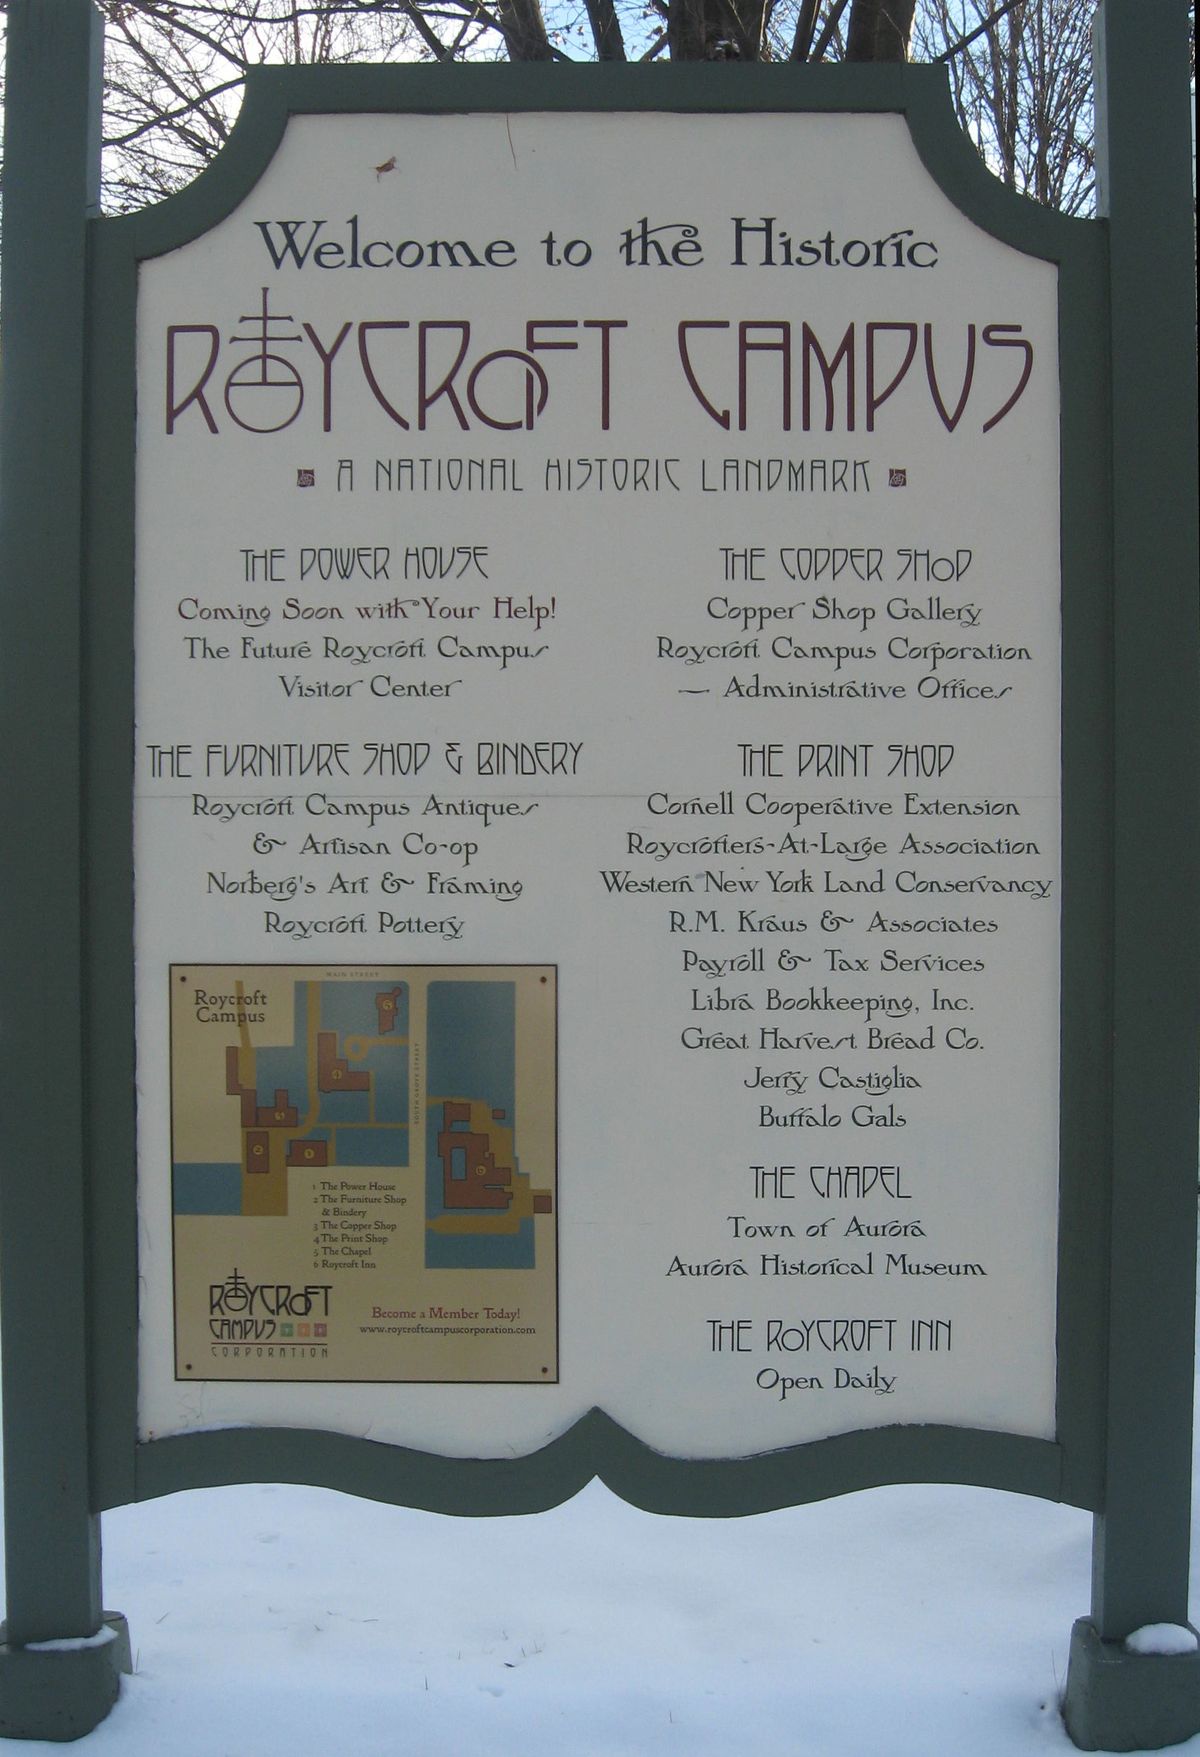 Welcome to the Historic
ROYCROFT CAMPUS
A NATIONAL HISTORIC LANDMARK
THE POWER HOUSE
Coming Soon with Your Help!
The Future Roycroft Campus
Visitor Center
THE FURNITURE SHOP & BINDERY
Roycroft Campus Antiques
& Artisan Co-op
Norberg's Art & Framing
Roycroft Pottery
THE COPPER SHOP
Copper Shop Gallery
Roycroft Campus Corporation
— Administrative Offices
THE PRINT SHOP
Cornell Cooperative Extension
Roycrofters-At-Large Association
Western New York Land Conservancy
R.M. Kraus & Associates
Payroll & Tax Services
Libra Bookkeeping, Inc.
Great Harvest Bread Co.
Jerry Castiglia
Buffalo Gals
THE CHAPEL
Town of Aurora
Aurora Historical Museum
THE ROYCROFT INN
Open Daily
MAIN STREET
Roycroft
Campus
SOUTH GROVE STREET
5
4
2
1
6
1 The Power House
2 The Furniture Shop
& Bindery
3 The Copper Shop
4 The Print Shop
5 The Chapel
6 Roycroft Inn
ROYCROFT
CAMPUS
CORPORATION
Become a Member Today!
www.roycroftcampuscorporation.com